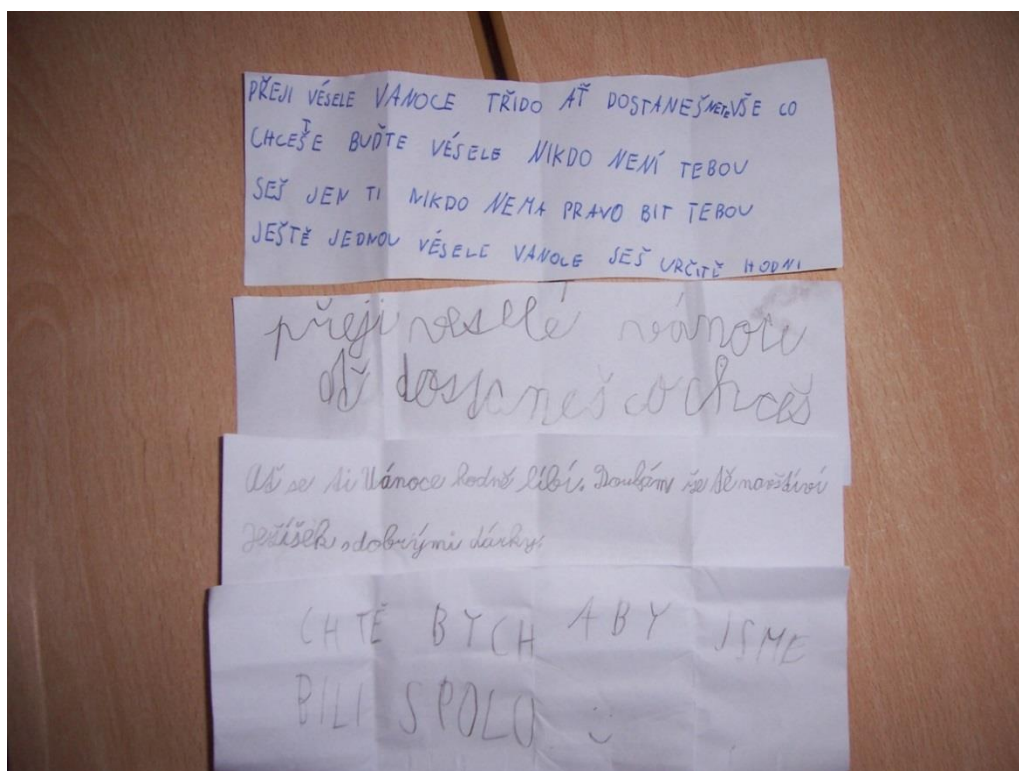 PŘEJI VÉSELE VANOCE TŘIDO AŤ DOSTANEŠNETEVŠE CO
CHCEŠTE BUĎTE VÉSELE NIKDO NENÍ TEBOU
SEŠ JEN TI NIKDO NEMA PRAVO BIT TEBOU
JEŠTĚ JEDNOU VÉSELE VANOCE SEŠ URČITĚ HODNI
přeji veselé vánoce
ať dostaneš co chceš
Ať se ti Vánoce hodně líbí. Doufám že tě navštíví
Ježíšek s dobrými dárky.
CHTĚ BYCH ABY JSME
BILI SPOLO